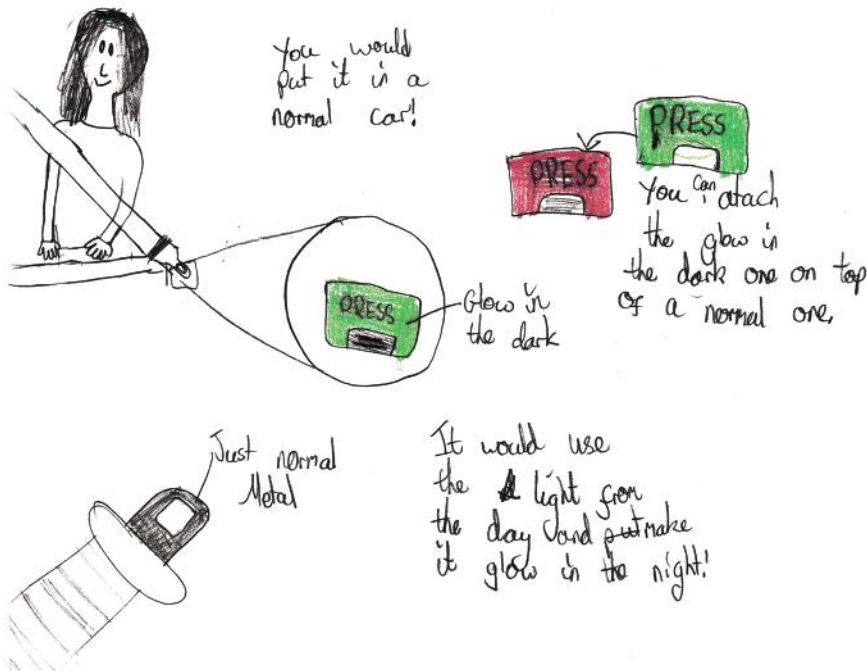 You would
put it in a
normal car!
PRESS
PRESS
You can atach
the glow in
the dark one on top
of a normal one.
PRESS
Glow in
the dark
Just normal
Metal
It would use
the light from
the day and make
it glow in the night!